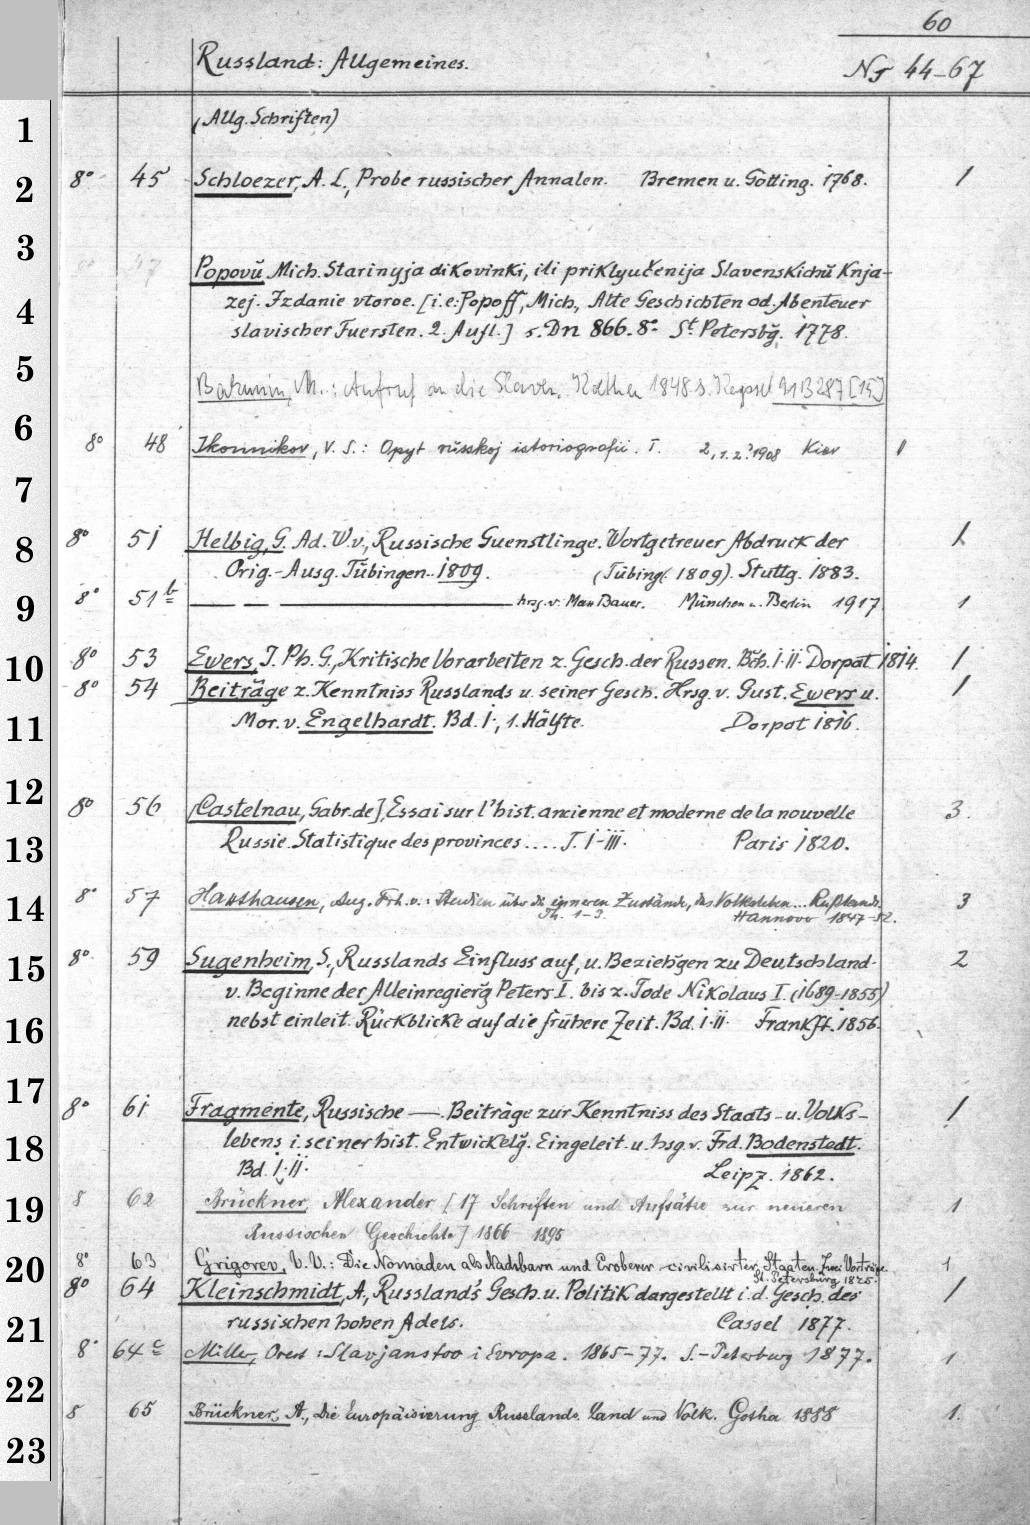 60
Russland: Allgemeines.
Nr 44-67
(Allg. Schriften)
1
2
3
4
5
6
7
8
9
10
11
12
13
14
15
16
17
18
19
20
21
22
23
8° 45 Schloezer, A. L., Probe russischer Annalen. Bremen u. Götting. 1768. 1
47 Popovŭ Mich. Starinyja dikovinki, ili priklyučenija Slavenskichŭ Knja-
zej. Izdanie vtoroe. [i.e: Popoff, Mich., Alte Geschichten od. Abenteuer
slavischer Fuersten. 2. Aufl.] s. Dn 866. 8° St. Petersbg. 1778.
Bakunin, M.: Aufruf an die Slaven. Koethen 1848 s. Kapsel 21 B 287 [15]
8° 48 Ikonnikov, V. S.: Opyt russkoj istoriografii. I. 2, 1. 2. 1908 Kiev 1
8° 51 Helbig, G. Ad. W. v., Russische Guenstlinge. Wortgetreuer Abdruck der 1
Orig.-Ausg. Tübingen 1809. (Tübing. 1809). Stuttg. 1883.
8° 51b — — — hrsg. v. Max Bauer. München u. Berlin 1917 1
8° 53 Ewers, J. Ph. G., Kritische Vorarbeiten z. Gesch. der Russen. Bch. I-II. Dorpat 1814. 1
8° 54 Beiträge z. Kenntniss Russlands u. seiner Gesch. Hrsg. v. Gust. Ewers u. 1
Mor. v. Engelhardt. Bd. I, 1. Hälfte. Dorpat 1816.
8° 56 [Castelnau, Gabr. de] Essai sur l'hist. ancienne et moderne de la nouvelle 3.
Russie. Statistique des provinces .... T. I-III. Paris 1820.
8° 57 Haxthausen, Aug. Frh. v.: Studien über die inneren Zustände, das Volksleben... Rußlands. 3
Th. 1-3. Hannover 1847-52.
8° 59 Sugenheim, S., Russlands Einfluss auf, u. Beziehgen zu Deutschland 2
v. Beginne der Alleinregierg Peters I. bis z. Tode Nikolaus I. (1689-1855)
nebst einleit. Rückblicke auf die frühere Zeit. Bd. I-II. Frankft. 1856.
8° 61 Fragmente, Russische —. Beiträge zur Kenntniss des Staats- u. Volks- 1
lebens i. seiner hist. Entwickelg. Eingeleit. u. hsg. v. Frd. Bodenstedt.
Bd. I-II. Leipz. 1862.
8 62 Brückner, Alexander [17 Schriften und Aufsätze zur neueren 1
Russischen Geschichte] 1866 1895
8° 63 Grigorev, V. V.: Die Nomaden als Nachbarn und Eroberer civilisirter Staaten. Zwei Vorträge. 1
St. Petersburg 1875.
8° 64 Kleinschmidt, A., Russland's Gesch. u. Politik dargestellt i. d. Gesch. des 1
russischen hohen Adels. Cassel 1877.
8° 64c Miller, Orest: Slavjanstvo i Evropa. 1865-77. S.-Peterburg 1877. 1
8 65 Brückner, A., Die Europäisierung Russlands. Land und Volk. Gotha 1888 1.